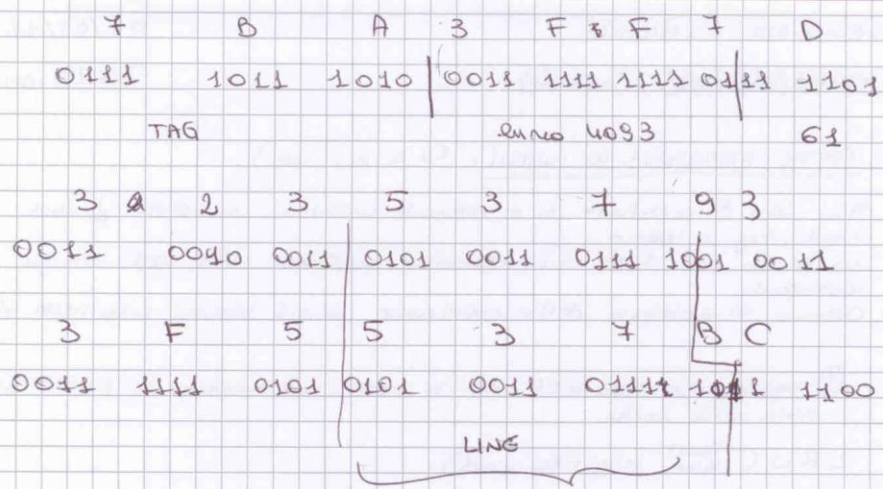 7 B A 3 F F 7 D
0111 1011 1010 0011 1111 1111 0111 1101
TAG linea 4093 61
3 2 3 5 3 7 9 3
0011 0010 0011 0101 0011 0111 1001 0011
3 F 5 5 3 7 B C
0011 1111 0101 0101 0011 0111 1011 1100
LINE